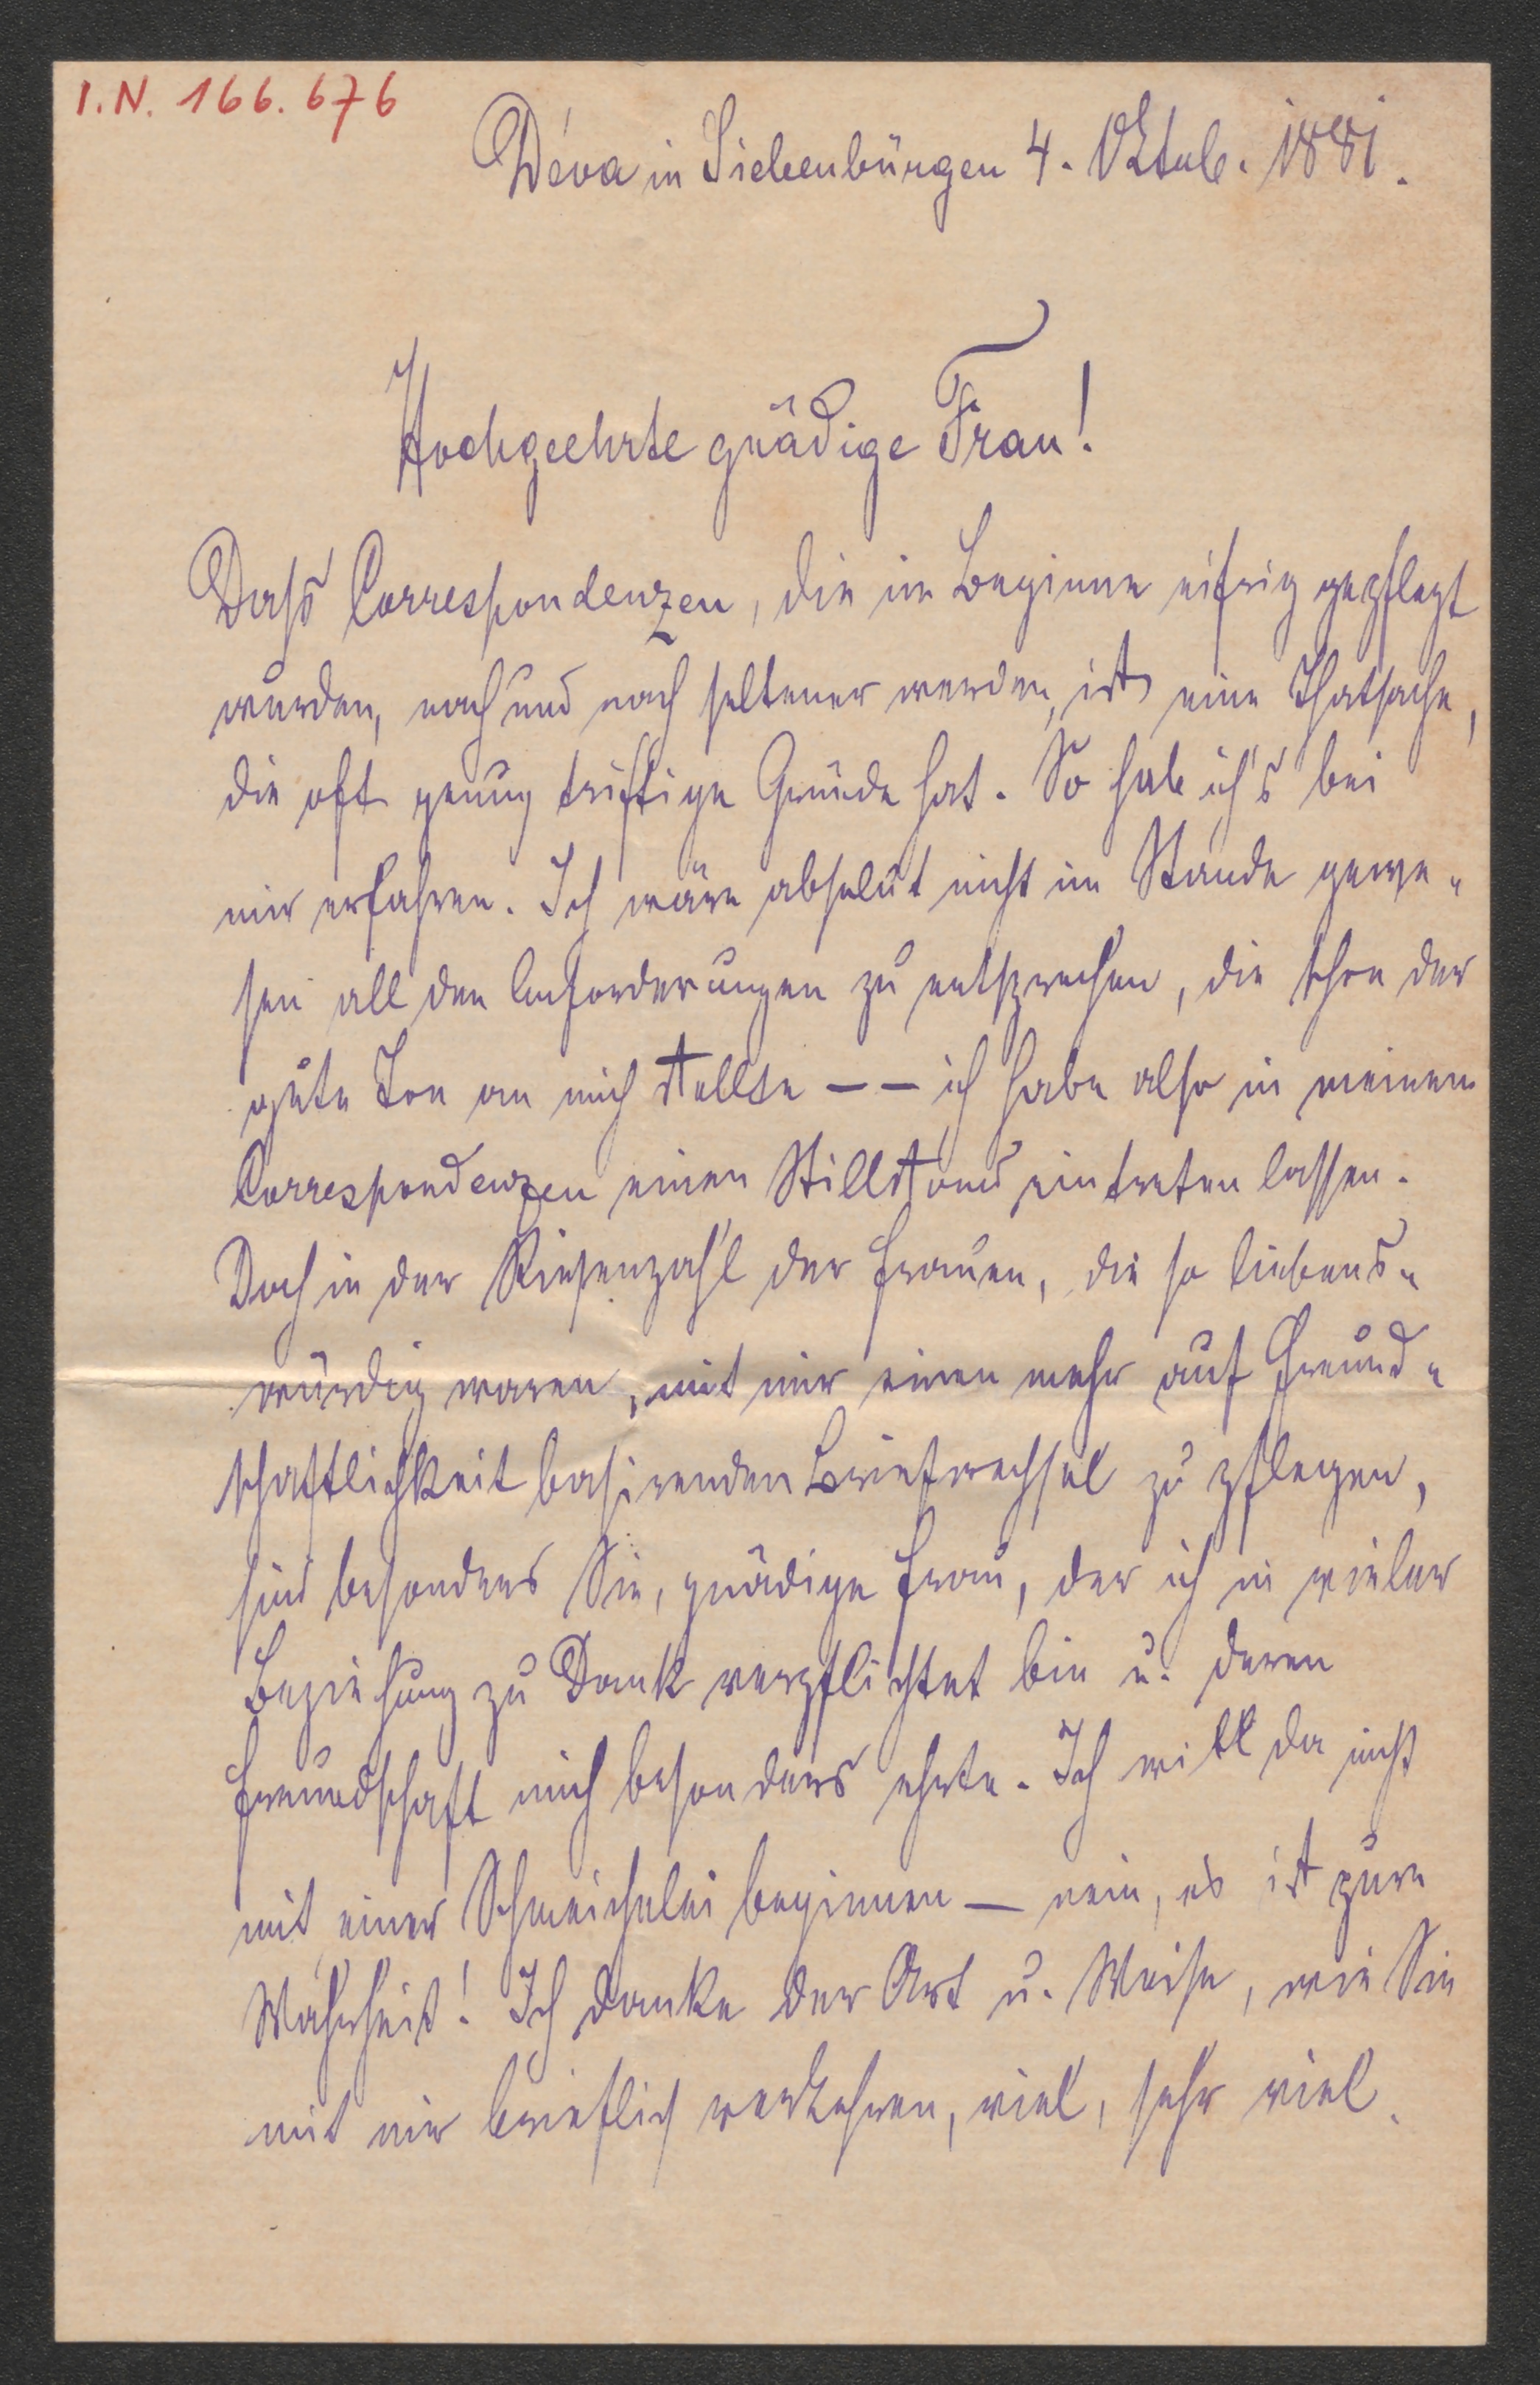 I.N. 166.676
Déva in Siebenbürgen 4. Oktob. 1881.
Hochgeehrte gnädige Frau!
Dass Correspondenzen, die im Beginne eifrig gepflegt
wurden, nach und nach seltener werden, ist eine Thatsache,
die oft genug triftige Gründe hat. So hab ich's bei
mir erfahren. Ich wäre absolut nicht im Stande gewe-
sen all den Anforderungen zu entsprechen, die schon der
gute Ton an mich stellte – – ich habe also in meinen
Correspondenzen einen Stillstand eintreten lassen.
Doch in der Riesenzahl der Frauen, die so liebens-
würdig waren, mit mir einen mehr auf Freund-
schaftlichkeit basirenden Briefwechsel zu pflegen,
sind besonders Sie, gnädige Frau, der ich in vieler
Beziehung zu Dank verpflichtet bin u. deren
Freundschaft mich besonders ehrte. Ich will da nicht
mit einer Schmeichelei beginnen – nein, es ist pure
Wahrheit! Ich danke der Art u. Weise, wie Sie
mit mir brieflich verkehren, viel, sehr viel.